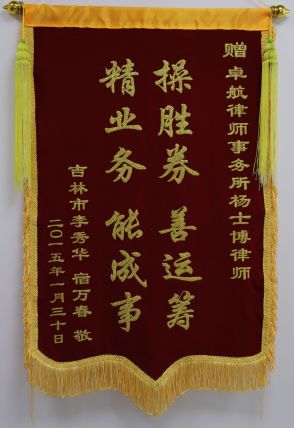 赠卓航律师事务所杨士博律师
操胜券 善运筹
精业务 能成事
吉林市李秀华 宿万春 敬
二〇一五年一月三十日